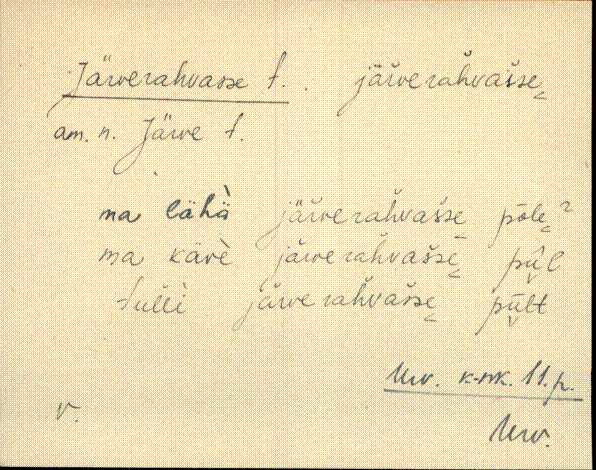 Järverahvasse t. . järverahvašse̬
am. n. Järve t.
ma lähä̀ järverahvašse̬ põle̬ˀ
ma kävè järverahvašše̬ pū̬l
tullì järverahvašse̬ pū̬lt
Urv. k-nk. 11. p.
v. Urv.